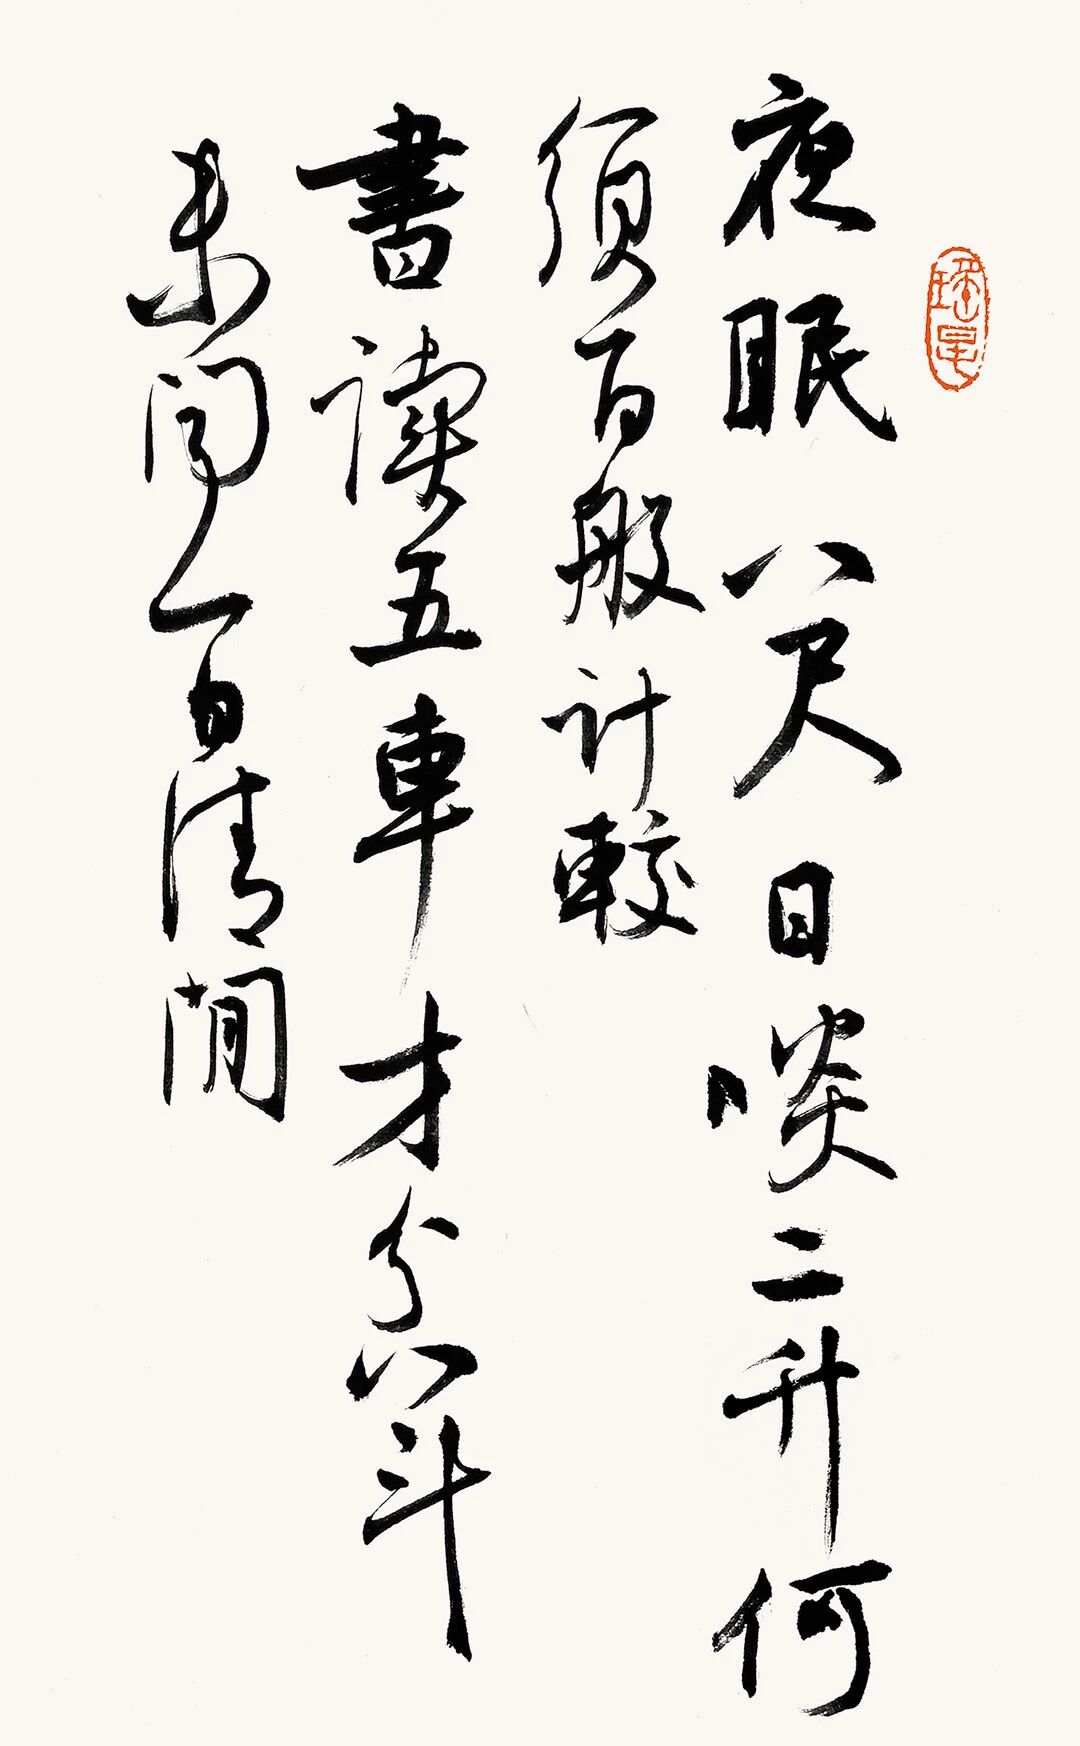 夜眠八尺日啖二升何
須百般計較
書讀五車才分八斗
未聞一日清閒